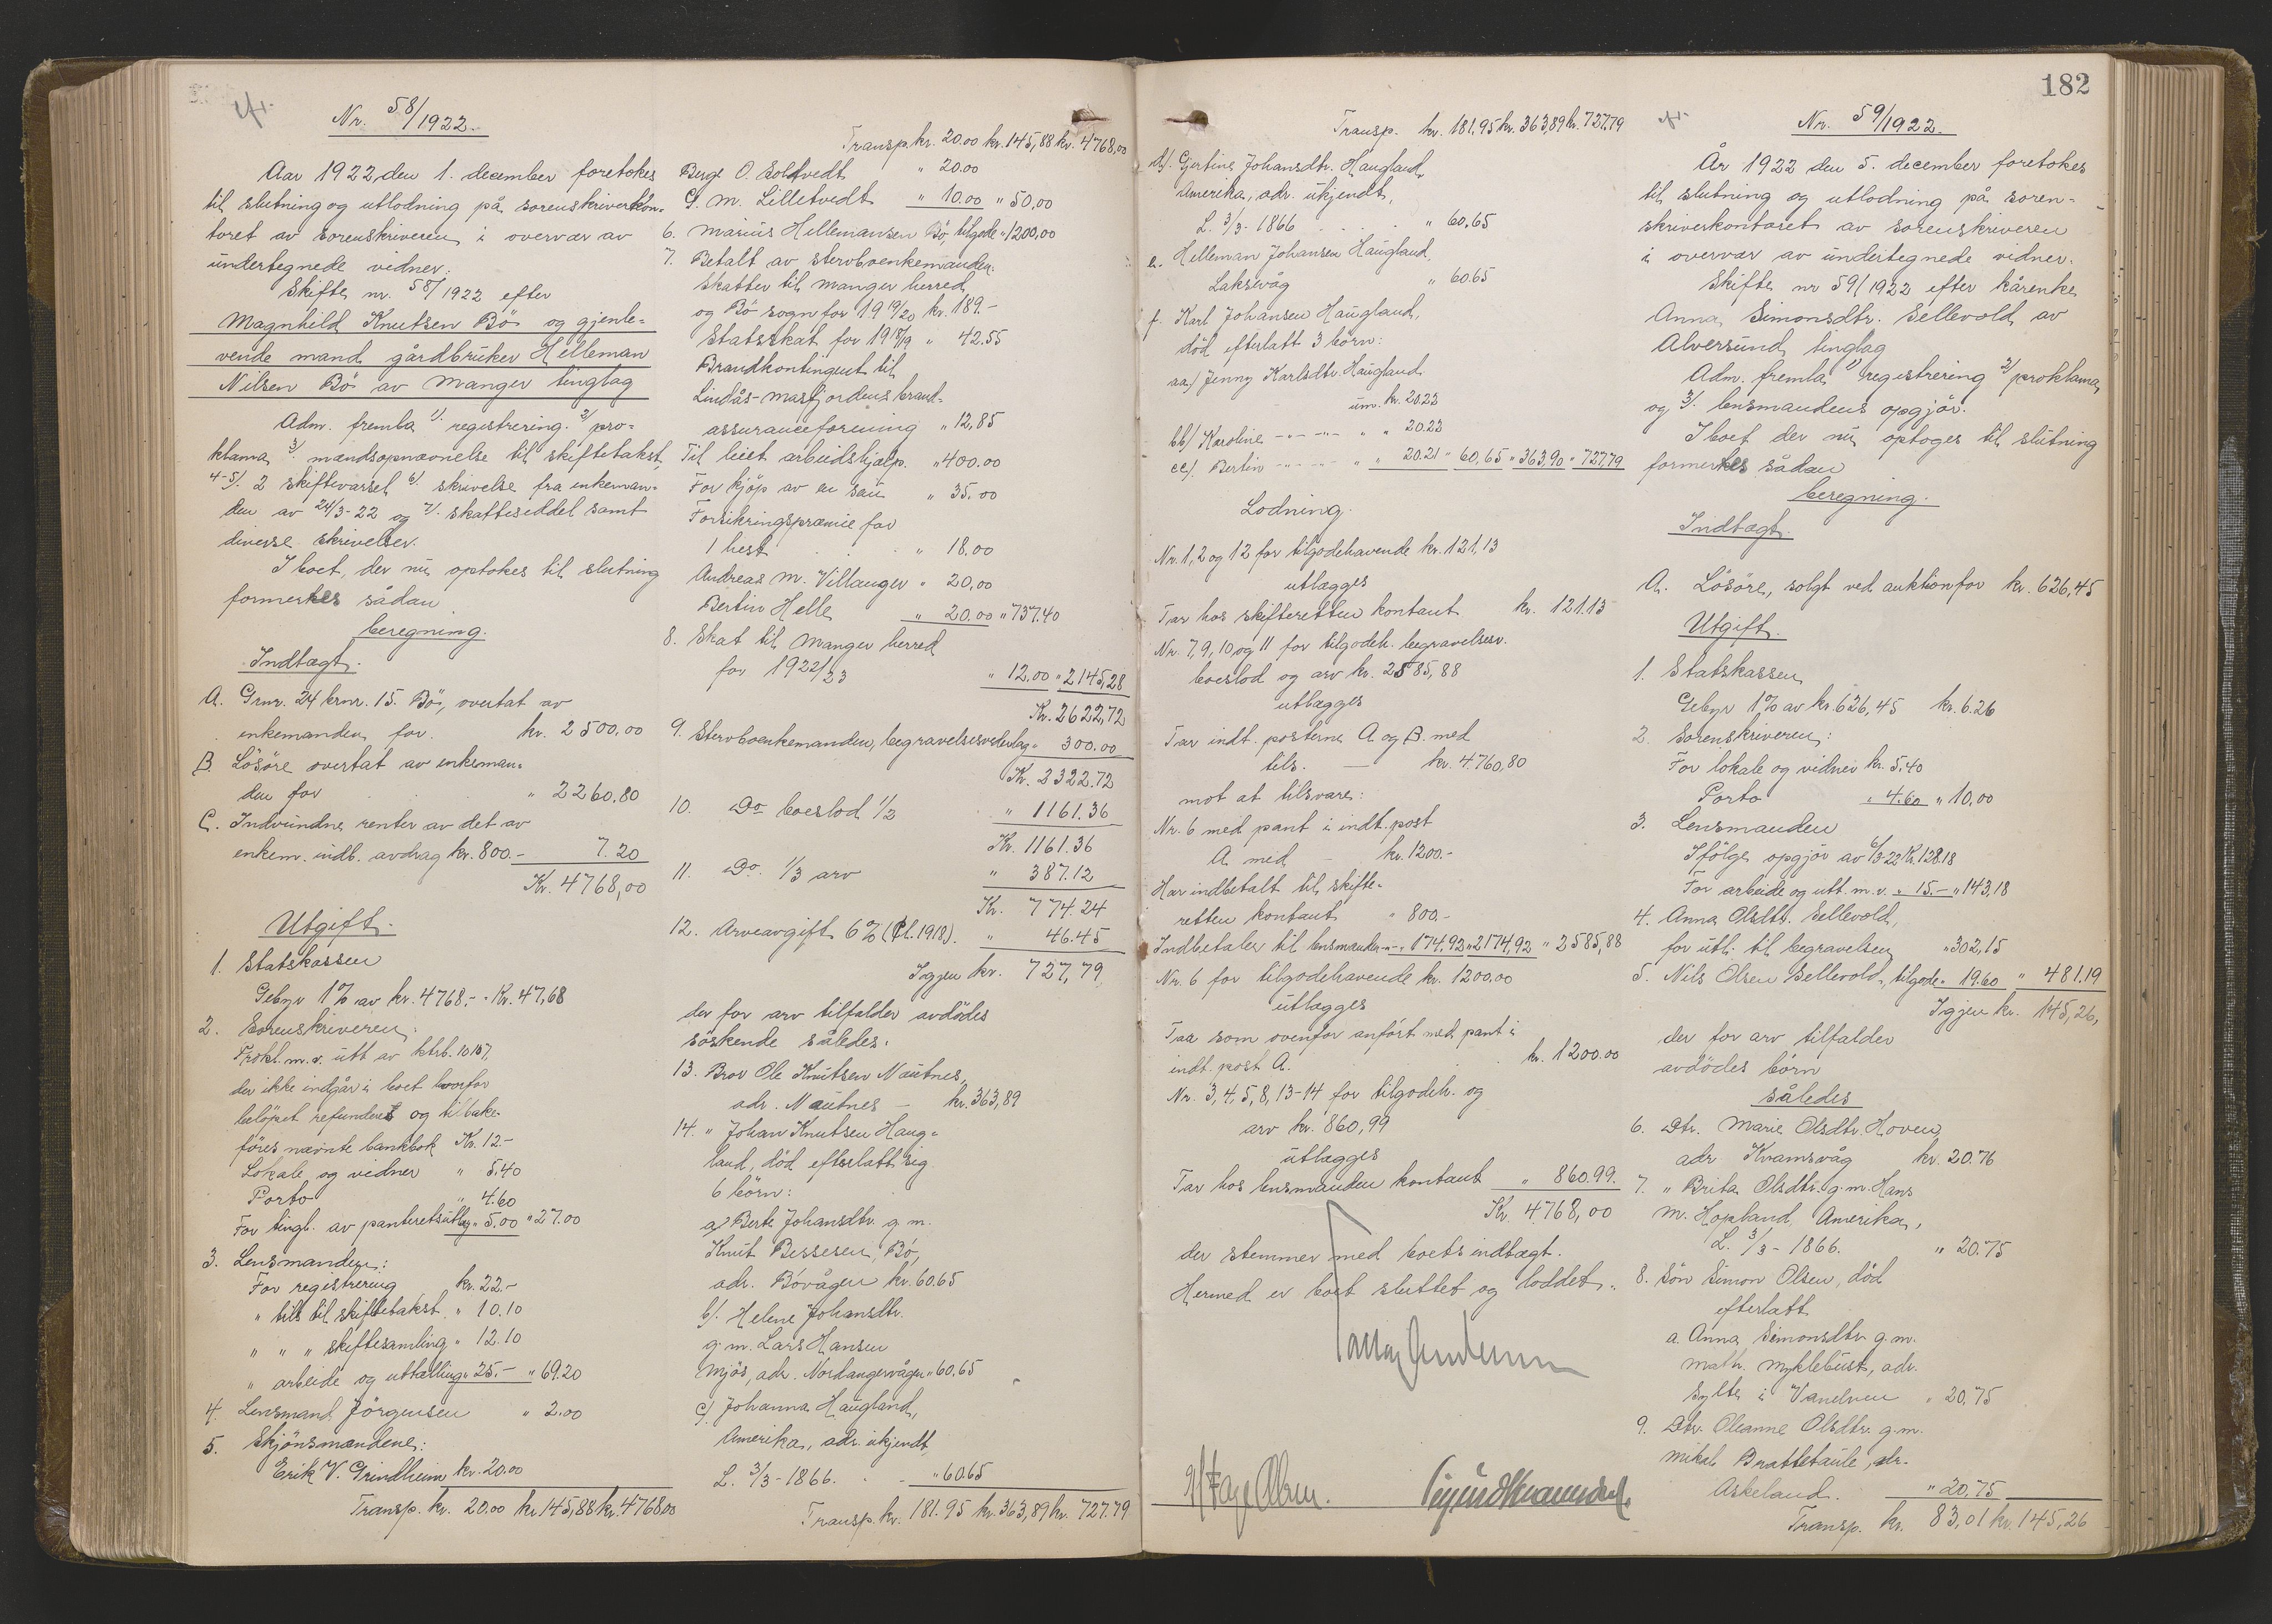 Nr. 58/1922.
Aar 1922 den 1. december foretokes
til slutning og utlodning på sorenskriverkon-
toret av sorenskriveren i overvær av
undertegnede vidner:
Skifte nr. 58/1922 efter
Magnhild Knutsen Bö og gjenle-
vende mand gårdbruker Helleman
Nilsen Bö av Manger tinglag
Adm. fremla 1/. registrering. 2/ pro-
klama 3/. mandsopnævnelse til skiftetakst,
4-5/. 2 skiftevarsel 6/. skrivelse fra enkeman-
den av 24/3-22 og 7/. skatteseddel samt
diverse skrivelser.
I boet, der nu optokes til slutning
formerkes sådan
beregning.
Indtægt.
A. Grnr. 24 brnr. 15. Bö, overtat av
enkemanden for. kr. 2500.00
B. Lösöre overtat av enkeman-
den for " 2260.80
C. Indvundne renter av det av
enkem. indb. avdrag kr. 800.- 7.20
Kr. 4768,00
Utgift.
1. Statskassen
Gebyr 1% av kr. 4768.- Kr. 47,68
2. Sorenskriveren:
Prokl. m.v. utt av ktrb. 10107,
der ikke indgår i boet hvorfor
belöpet refunderes og tilbake-
föres nævnte bankbok Kr. 12.-
Lokale og vidner " 5.40
Porto " 4.60
For tingl. av panteretsutlæg " 5.00 " 27.00
3. Lensmanden:
For registrering kr. 22.-
" tils til skiftetakst " 10.10
" " " skiftesamling " 12.10
" arbeide og uttælling " 25.- " 69.20
4. Lensmand Jörgensen " 2.00
5. Skjönsmændene:
Erik V. Grindheim kr. 20.00
Transp. kr. 20.00 kr 145,88 kr. 4768.00
Transp. kr. 20.00 kr. 145,88 kr. 4768,00
Berge O. Soltvedt " 20.00
G. M. Lilletvedt " 10.00 " 50.00
6. Marius Hellemansen Bö, tilgode " 1200,00
7. Betalt av stervboenkemanden:
Skatter til Manger herred
og Bö sogn for 1919/20 kr. 189.-
Statsskat for 1918/19 " 42.55
Brandkontingent til
Lindås-Masfjordens brand-
assuranceforening " 12,85
Til leiet arbeidshjælp. " 400.00
For kjöp av en sau " 35.00
Forsikringspræmie for
1 hest " 18.00
Andreas M. Villanger " 20,00
Bertin Helle " 20.00 " 737.40
8. Skat til Manger herred
for 1922/23 " 12.00 " 2145,28
Kr. 2622,72
9. Stervboenkemanden, begravelsesvederlag " 300.00
Kr. 2322.72
10. Do boeslod 1/2 " 1161.36
Kr. 1161.36
11. Do. 1/3 arv " 387.12
Kr. 774.24
12. Arveavgift 6% (Pl. 1918). " 46.45
Igjen kr. 727,79
der for arv tilfalder avdödes
söskende således:
13. Bror Ole Knutsen Nautnes,
adr. Nautnes - kr. 363,89
14. " Johan Knutsen Haug-
land, död efterlatt sig
6 börn:
a/ Berte Johansdtr. g. m.
Knut Bessesen Bö,
adr. Bövågen kr. 60.65
b/. Helene Johansdtr.
g. m. Lars Hansen
Mjös, adr. Nordangervågen " 60.65
c/ Johanna Haugland,
Amerika, adr. ukjendt
L. 3/3-1866. " 60.65
Transp. kr. 181.95 kr. 363,89 kr. 727.79
Transp. kr. 181.95 kr. 363,89 kr. 727,79
d/. Gjertine Johansdtr. Haugland,
Amerika, adr. ukjendt,
L. 3/3-1866 . . . . " 60,65
e. Helleman Johansen Haugland,
Laksevåg " 60.65
f. Karl Johansen Haugland,
död efterlatt 3 börn:
aa/ Jenny Karlsdtr. Haugland
um. kr. 20.23
bb/ Karoline -"- -"- " " 20.23
cc/. Bertin -"- -"- " " 20.21 " 60,65 " 363,90 " 727,79
Lodning.
Nr. 1, 2 og 12 for tilgodehavende kr. 121,13
utlægges
Tar hos skifteretten kontant kr. 121.13
Nr. 7, 9, 10 og 11 for tilgodeh. begravelsesv.
boeslod og arv kr. 2585,88
utlægges
Tar indt. posterne A. og B. med
tils. - kr. 4.760,80
mot at tilsvare:
Nr. 6 med pant i indt. post
A. med - kr. 1200.-
Har indbetalt til skifte-
retten kontant " 800.-
Indbetaler til lensmanden -"- 174.92 " 2174,92 " 2585,88
Nr. 6 for tilgodehavende kr. 1200.00
utlægges
Taa som ovenfor anfört med pant i
indt. post A. kr. 1200.00
Nr. 3, 4, 5, 8, 13-14 for tilgodeh. og
arv kr. 860,99
utlægges
Tar hos lensmanden kontant " 860.99.
Kr. 4768,00
der stemmer med boets indtægt.
Hermed er boet sluttet og loddet.
182
Nr. 59/1922.
År 1922 den 5. december foretokes
til slutning og utlodning på soren-
skriverkontoret av sorenskriveren
i overvær av undertegnede vidner.
Skifte nr 59/1922 efter kårenke
Anna Simonsdtr. Sellevold av
Alversund tinglag
Adm. fremla 1/ registrering 2/ proklama
og 3/. lensmandens opgjör.
I boet der nu optoges til slutning
formerkes sådan
beregning.
Indtægt.
A. Lösöre, solgt ved auktion for kr. 626,45
Utgift.
1. Statskassen
Gebyr 1% av kr. 626,45 kr. 6.26
2. Sorenskriveren:
For lokale og vidner kr. 5.40
Porto " 4.60 " 10.00
3. Lensmanden
Ifölge opgjör av 6/3-22 Kr. 128.18
For arbeide og utt. m.v. " 15.- " 143,18
4. Anna Olsdtr. Sellevold,
for utl. til begravelsen " 302,15
5. Nils Olsen Sellevold, tilgode " 19.60 " 481.19
Igjen kr. 145,26,
der for arv tilfalder
avdödes börn
således
6. Dtr. Marie Olsdtr. Hoven
adr Kvamsvåg kr. 20.76
7. " Brita Olsdtr. g. m. Hans
M. Hopland, Amerika,
L. 3/3-1866. " 20.75
8. Sön Simon Olsen, död
efterlatt
a. Anna Simonsdtr g. m.
Math. Myklebust, adr.
Sylte i Vanelven " 20.75
9. Dtr. Oleanne Olsdtr. g. m.
Mikal Brattetaule, adr.
Askeland. " 20,75
Transp. kr. 83,01 kr. 145,26